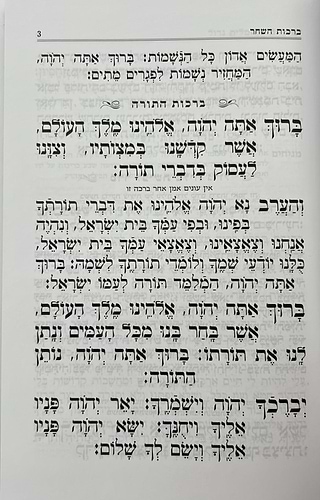 ברכות השחר
3
הַמַּעֲשִׂים אֲדוֹן כָּל הַנְּשָׁמוֹת: בָּרוּךְ אַתָּה יְהֹוָה,
הַמַּחֲזִיר נְשָׁמוֹת לִפְגָרִים מֵתִים:
ברכות התורה
בָּרוּךְ אַתָּה יְהֹוָה, אֱלֹהֵינוּ מֶלֶךְ הָעוֹלָם,
אֲשֶׁר קִדְּשָׁנוּ בְּמִצְוֹתָיו, וְצִוָּנוּ
לַעֲסוֹק בְּדִבְרֵי תוֹרָה:
אין עונים אמן אחר ברכה זו
וְהַעֲרֶב נָא יְהֹוָה אֱלֹהֵינוּ אֶת דִּבְרֵי תוֹרָתְךָ
בְּפִינוּ, וּבְפִי עַמְּךָ בֵּית יִשְׂרָאֵל, וְנִהְיֶה
אֲנַחְנוּ וְצֶאֱצָאֵינוּ, וְצֶאֱצָאֵי עַמְּךָ בֵּית יִשְׂרָאֵל,
כֻּלָּנוּ יוֹדְעֵי שְׁמֶךָ וְלוֹמְדֵי תוֹרָתֶךָ לִשְׁמָהּ: בָּרוּךְ
אַתָּה יְהֹוָה, הַמְלַמֵּד תּוֹרָה לְעַמּוֹ יִשְׂרָאֵל:
בָּרוּךְ אַתָּה יְהֹוָה, אֱלֹהֵינוּ מֶלֶךְ הָעוֹלָם,
אֲשֶׁר בָּחַר בָּנוּ מִכָּל הָעַמִּים וְנָתַן
לָנוּ אֶת תּוֹרָתוֹ: בָּרוּךְ אַתָּה יְהֹוָה, נוֹתֵן
הַתּוֹרָה:
יְבָרֶכְךָ יְהֹוָה וְיִשְׁמְרֶךָ: יָאֵר יְהֹוָה פָּנָיו
אֵלֶיךָ וִיחֻנֶּךָּ: יִשָּׂא יְהֹוָה פָּנָיו
אֵלֶיךָ וְיָשֵׂם לְךָ שָׁלוֹם: